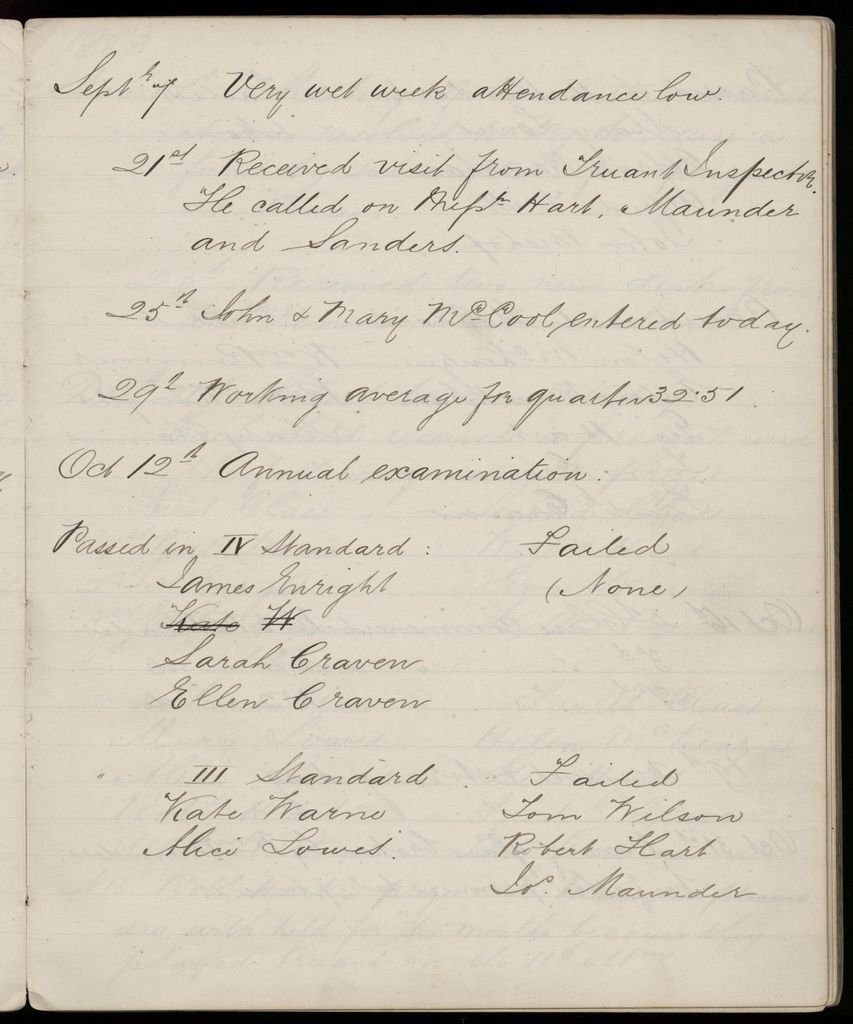 Septr 7 Very wet week attendance low.
21st Received visit from Truant Inspector.
He called on Messrs Hart, Maunder
and Sanders.
25th John & Mary McCool entered today.
29th Working average for quarter 32.51.
Oct 12th Annual examination.
Passed in IV Standard: Failed
James Enright (None)
Kate W
Sarah Craven
Ellen Craven
" III Standard Failed
Kate Warne Tom Wilson
Alice Lowes. Robert Hart
Jos. Maunder